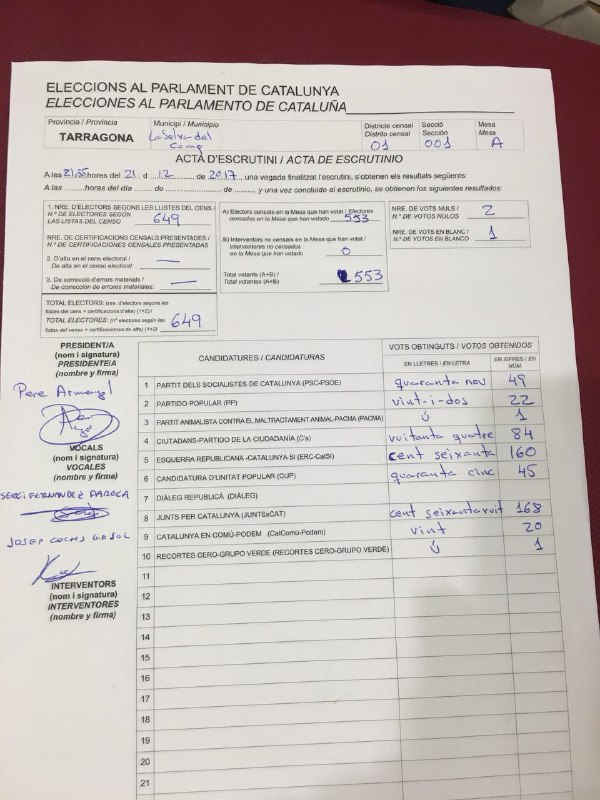 ELECCIONS AL PARLAMENT DE CATALUNYA
ELECCIONES AL PARLAMENTO DE CATALUÑA
Província / Provincia
TARRAGONA
Municipi / Municipio
La Selva del
Camp
Districte censal
Distrito censal
01
Secció
Sección
001
Mesa
Mesa
A
ACTA D'ESCRUTINI / ACTA DE ESCRUTINIO
A les 21,35 hores del 21 d 12 de 2017, una vegada finalitzat l'escrutini, s'obtenen els resultats següents:
A las ........ horas del día ........ de ................ de ........, y una vez concluido el escrutinio, se obtienen los siguientes resultados:
1. NRE. D'ELECTORS SEGONS LES LLISTES DEL CENS /
N.º DE ELECTORES SEGÚN
LAS LISTAS DEL CENSO
649
NRE. DE CERTIFICACIONS CENSALS PRESENTADES /
N.º DE CERTIFICACIONES CENSALES PRESENTADAS
2. D'alta en el cens electoral /
De alta en el censo electoral: —
3. De correcció d'errors materials /
De corrección de errores materiales: —
TOTAL ELECTORS: (nre. d'electors segons les
llistes del cens + certificacions d'alta) (1+2) /
TOTAL ELECTORES: (nº electores según las
listas del censo + certificaciones de alta) (1+2)
649
A) Electors censats en la Mesa que han votat / Electores
censados en la Mesa que han votado
553
B) Interventors no censats en la Mesa que han votat /
Interventores no censados
en la Mesa que han votado
0
Total votants (A+B) /
Total votantes (A+B)
553
NRE. DE VOTS NULS /
N.º DE VOTOS NULOS
2
NRE. DE VOTS EN BLANC /
N.º DE VOTOS EN BLANCO
1
PRESIDENT/A
(nom i signatura)
PRESIDENTE/A
(nombre y firma)
Pere Armengl
VOCALS
(nom i signatura)
VOCALES
(nombre y firma)
SERGI FERNANDEZ
JOSEP
INTERVENTORS
(nom i signatura)
INTERVENTORES
(nombre y firma)
CANDIDATURES / CANDIDATURAS
VOTS OBTINGUTS / VOTOS OBTENIDOS
EN LLETRES / EN LETRA
EN XIFRES / EN NÚM.
1 PARTIT DELS SOCIALISTES DE CATALUNYA (PSC-PSOE) quaranta nou 49
2 PARTIDO POPULAR (PP) vint-i-dos 22
3 PARTIT ANIMALISTA CONTRA EL MALTRACTAMENT ANIMAL-PACMA (PACMA) ú 1
4 CIUTADANS-PARTIDO DE LA CIUDADANÍA (C's) vuitanta quatre 84
5 ESQUERRA REPUBLICANA -CATALUNYA SÍ (ERC-CatSí) cent seixanta 160
6 CANDIDATURA D'UNITAT POPULAR (CUP) quaranta cinc 45
7 DIÀLEG REPUBLICÀ (DIÀLEG)
8 JUNTS PER CATALUNYA (JUNTSxCAT) cent seixanta vuit 168
9 CATALUNYA EN COMÚ-PODEM (CatComú-Podem) vint 20
10 RECORTES CERO-GRUPO VERDE (RECORTES CERO-GRUPO VERDE) ú 1
11
12
13
14
15
16
17
18
19
20
21